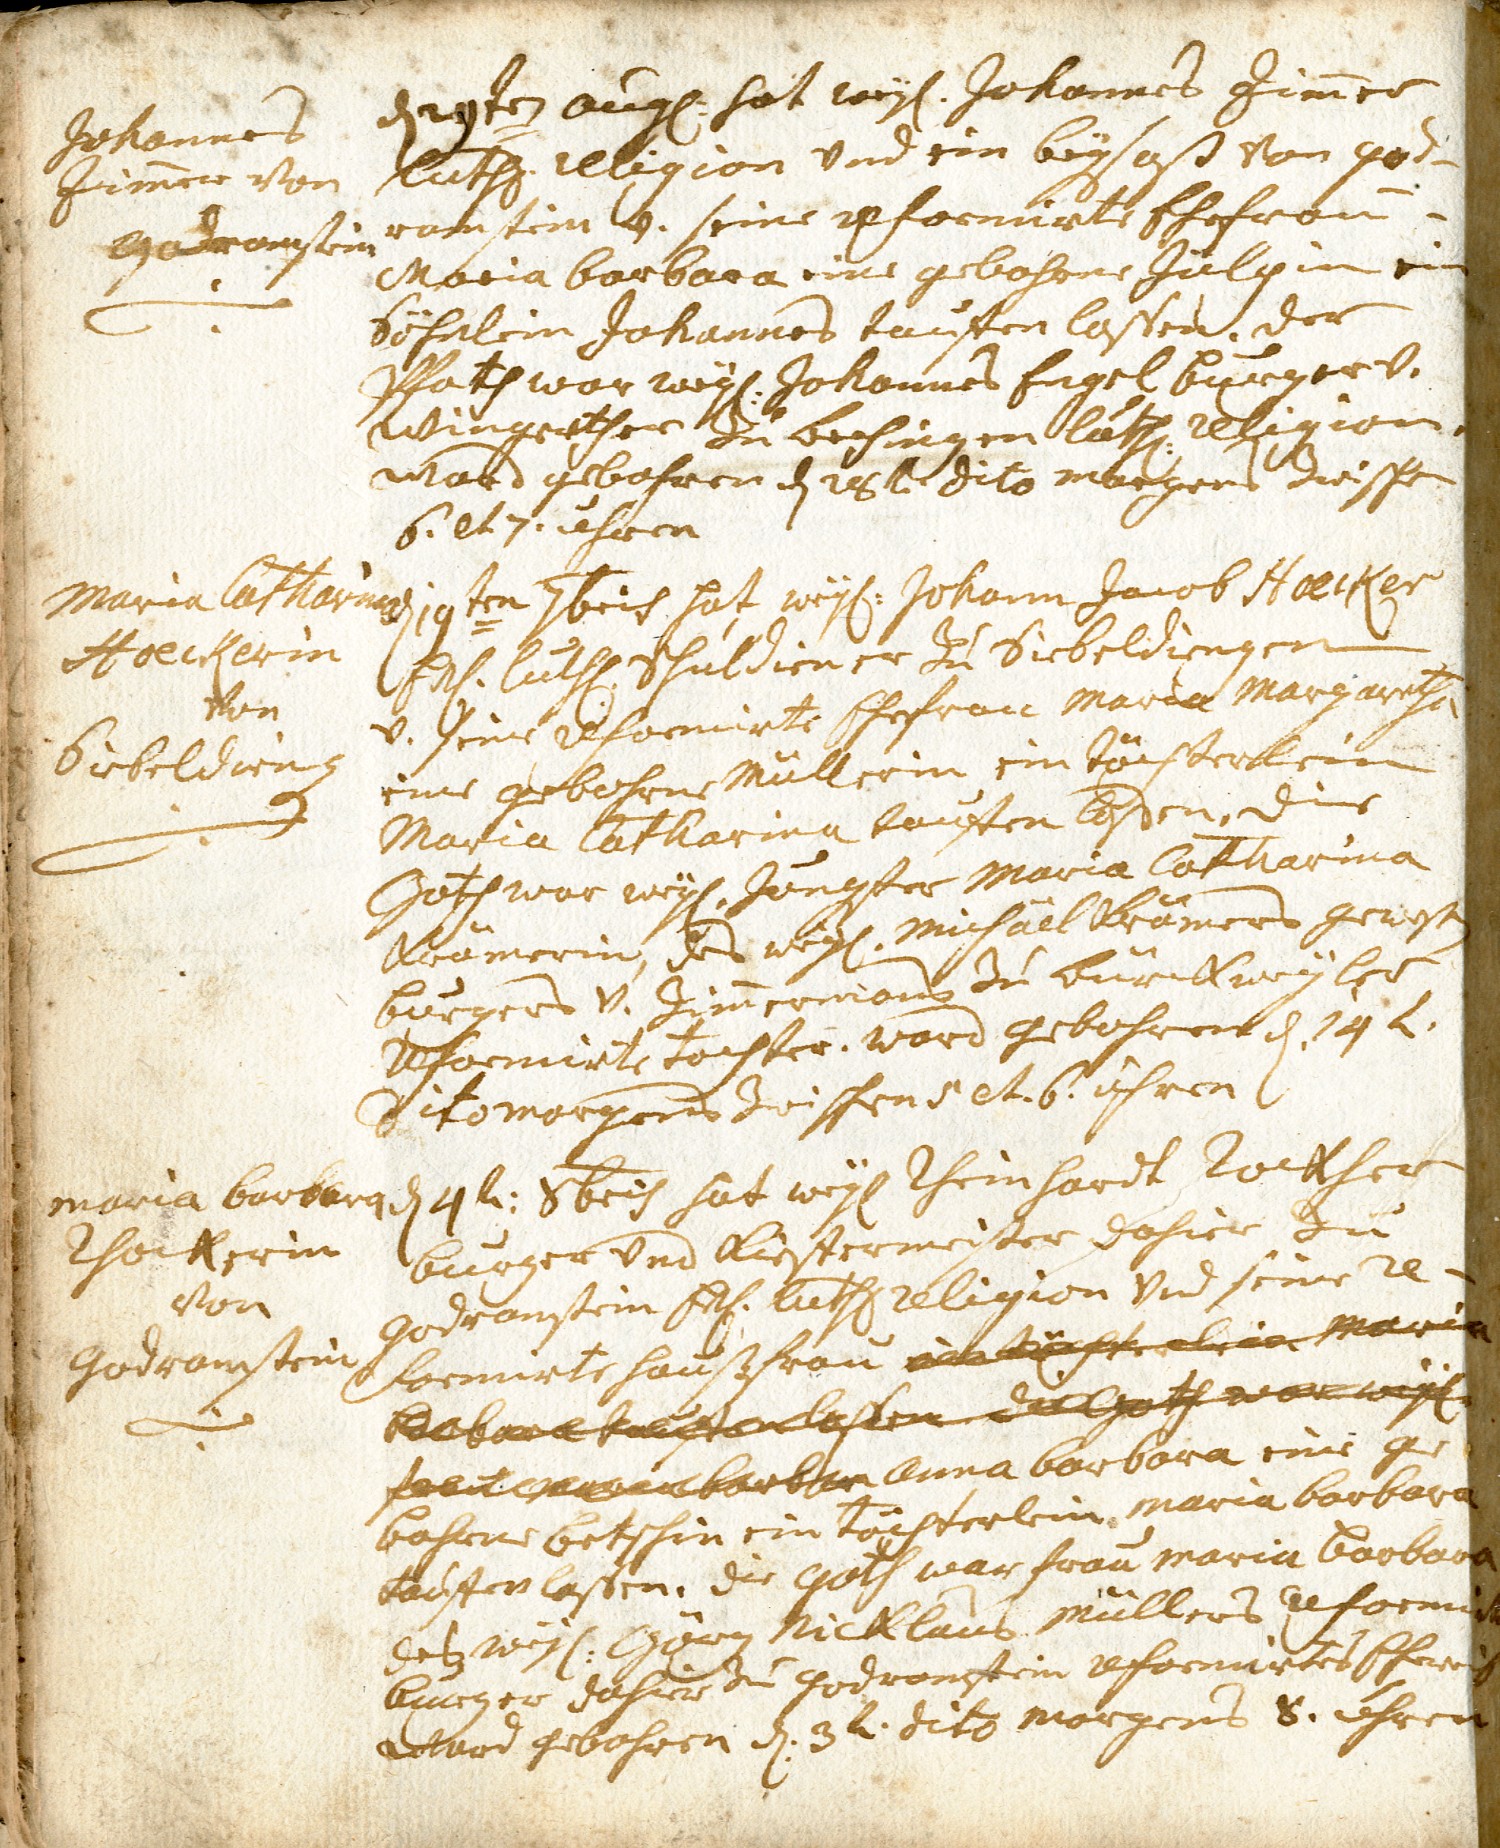 Johannes
Zim̄er von
Godramstein
d 29ten aug: hat mstr. Johannes Zim̄er
luth. religion vnd ein beysaß von god-
ramstein v. seine reformirte Ehefrau -
Maria barbara eine gebohrne Jülgin ein
Söhnlein Johannes tauffen lassen. der
Pfath war mstr: Johannes Engel burger v.
Wingerther zu bechingen luth: religion.
Ward gebohren d 28t dito morgens zwischen
6. et 7. uhren
Maria Catharina
Hoeckerin
von
Siebelding
d 19ten 7bris hat mstr: Johann Jacob Hoecker
Ev. luth. Schuldiener zu Siebeldiengen
v. seine reformirte Ehefrau Maria Margaretha
eine gebohrne Müllerin ein töchterlein
Maria Catharina tauffen lassen, die
Goth war mstr. Jungfer Maria Catharina
Krämerin, des mstr. Michäel Krämers gewes.
burgers v. Zim̄ermans zu bürckweyler
reformirte tochter. ward gebohren d. 14 t.
dito morgens zwischen 5 et. 6. uhren
maria barbara
Rhockerin
von
Godramstein
d 4 t: 8bris hat mstr Rheinhardt Rockher
burger vnd Kiefermeister dahier zu
godramstein Ev. luth religion vnd seine re-
formirte haußfrau ein töchterlein Maria
barbara tauffen lassen die Goth war mstr
frau maria barbara anna barbara eine ge
bohrne betschin ein töchterlein maria barbara
tauffen lassen. die goth war frau maria barbara
des mstr: Görg Nicklaus Müllers reformirt
burger dahier zu godramstein reformirtes Eheweib
Ward gebohren d. 3 t. dito morgens 8. uhren